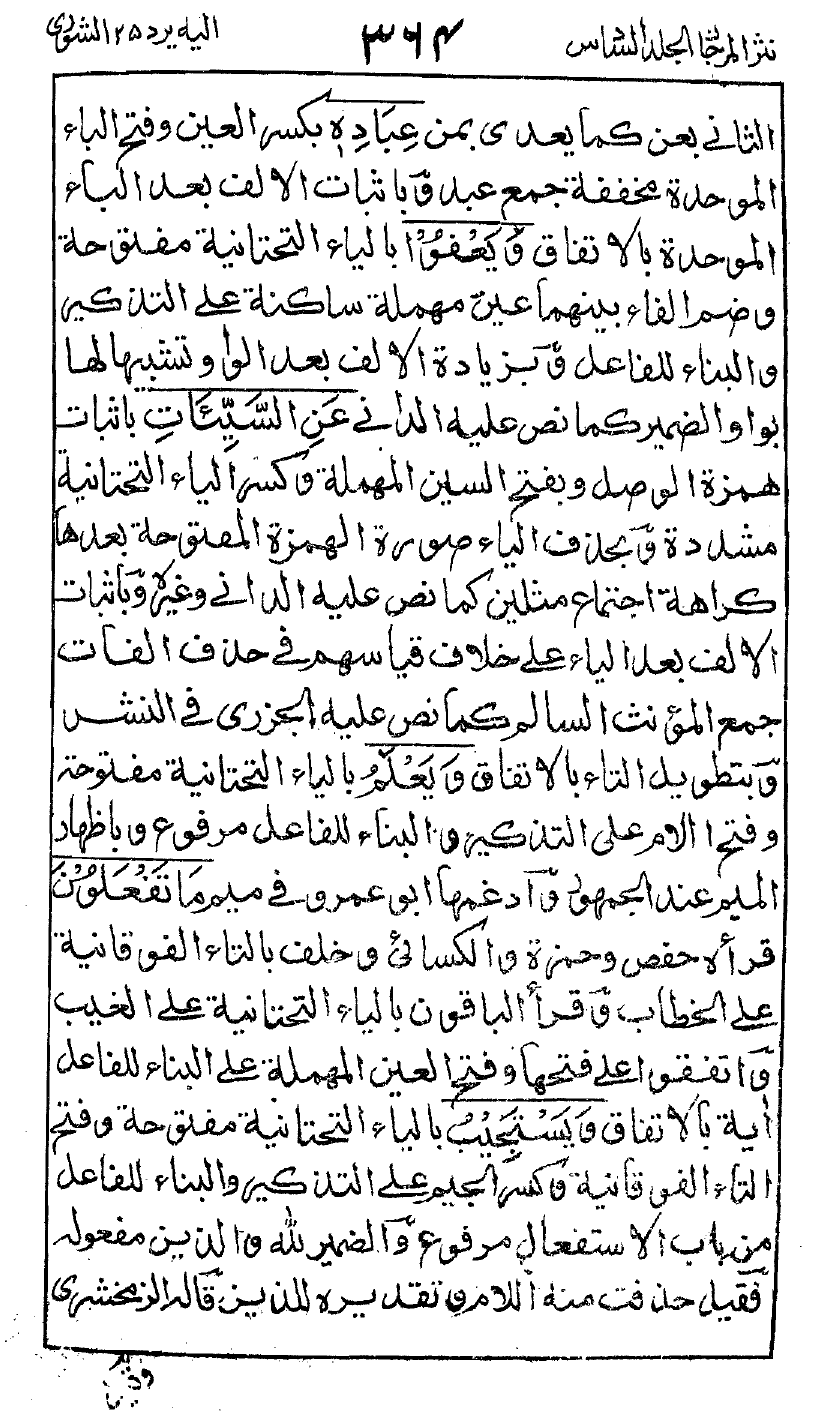 نثر المرجان الجلد السادس ٣٦٤ اليه يرد ٢٥ الشورى
الثانى بعن كما يعدى بمن عِبَادِهٖ بكسر العين وفتح الباء
الموحدة مخففة جمع عبد وباثبات الالف بعد الباء
الموحدة بالاتفاق وَيَعْفُوْا بالياء التحتانية مفتوحة
وضم الفاء بينهما عين مهملة ساكنة على التذكير
والبناء للفاعل وبزيادة الالف بعد الواو تشبيها لها
بواو الضمير كما نص عليه الدانى عَنِ السَّيِّئَاتِ باثبات
همزة الوصل وبفتح السين المهملة وكسر الياء التحتانية
مشددة وبحذف الياء صورة الهمزة المفتوحة بعدها
كراهة اجتماع مثلين كما نص عليه الدانى وغيره وباثبات
الالف بعد الياء على خلاف قياسهم فى حذف الفات
جمع المؤنث السالم كما نص عليه الجزرى فى النشر
وبتطويل التاء بالاتفاق وَيَعْلَمُ بالياء التحتانية مفتوحة
وفتح اللام على التذكير والبناء للفاعل مرفوع وباظهار
الميم عند الجمهور وادغمها ابو عمرو فى ميم مَا تَفْعَلُوْنَ
قرأه حفص وحمزة والكسائى وخلف بالتاء الفوقانية
على الخطاب وقرأ الباقون بالياء التحتانية على الغيب
واتفقوا على فتحها وفتح العين المهملة على البناء للفاعل
أية بالاتفاق وَيَسْتَجِيْبُ بالياء التحتانية مفتوحة وفتح
التاء الفوقانية وكسر الجيم على التذكير والبناء للفاعل
من باب الاستفعال مرفوع والضمير لله والذين مفعوله
فقيل حذفت منه اللام وتقديره للذين قاله الزمخشرى
وقيل